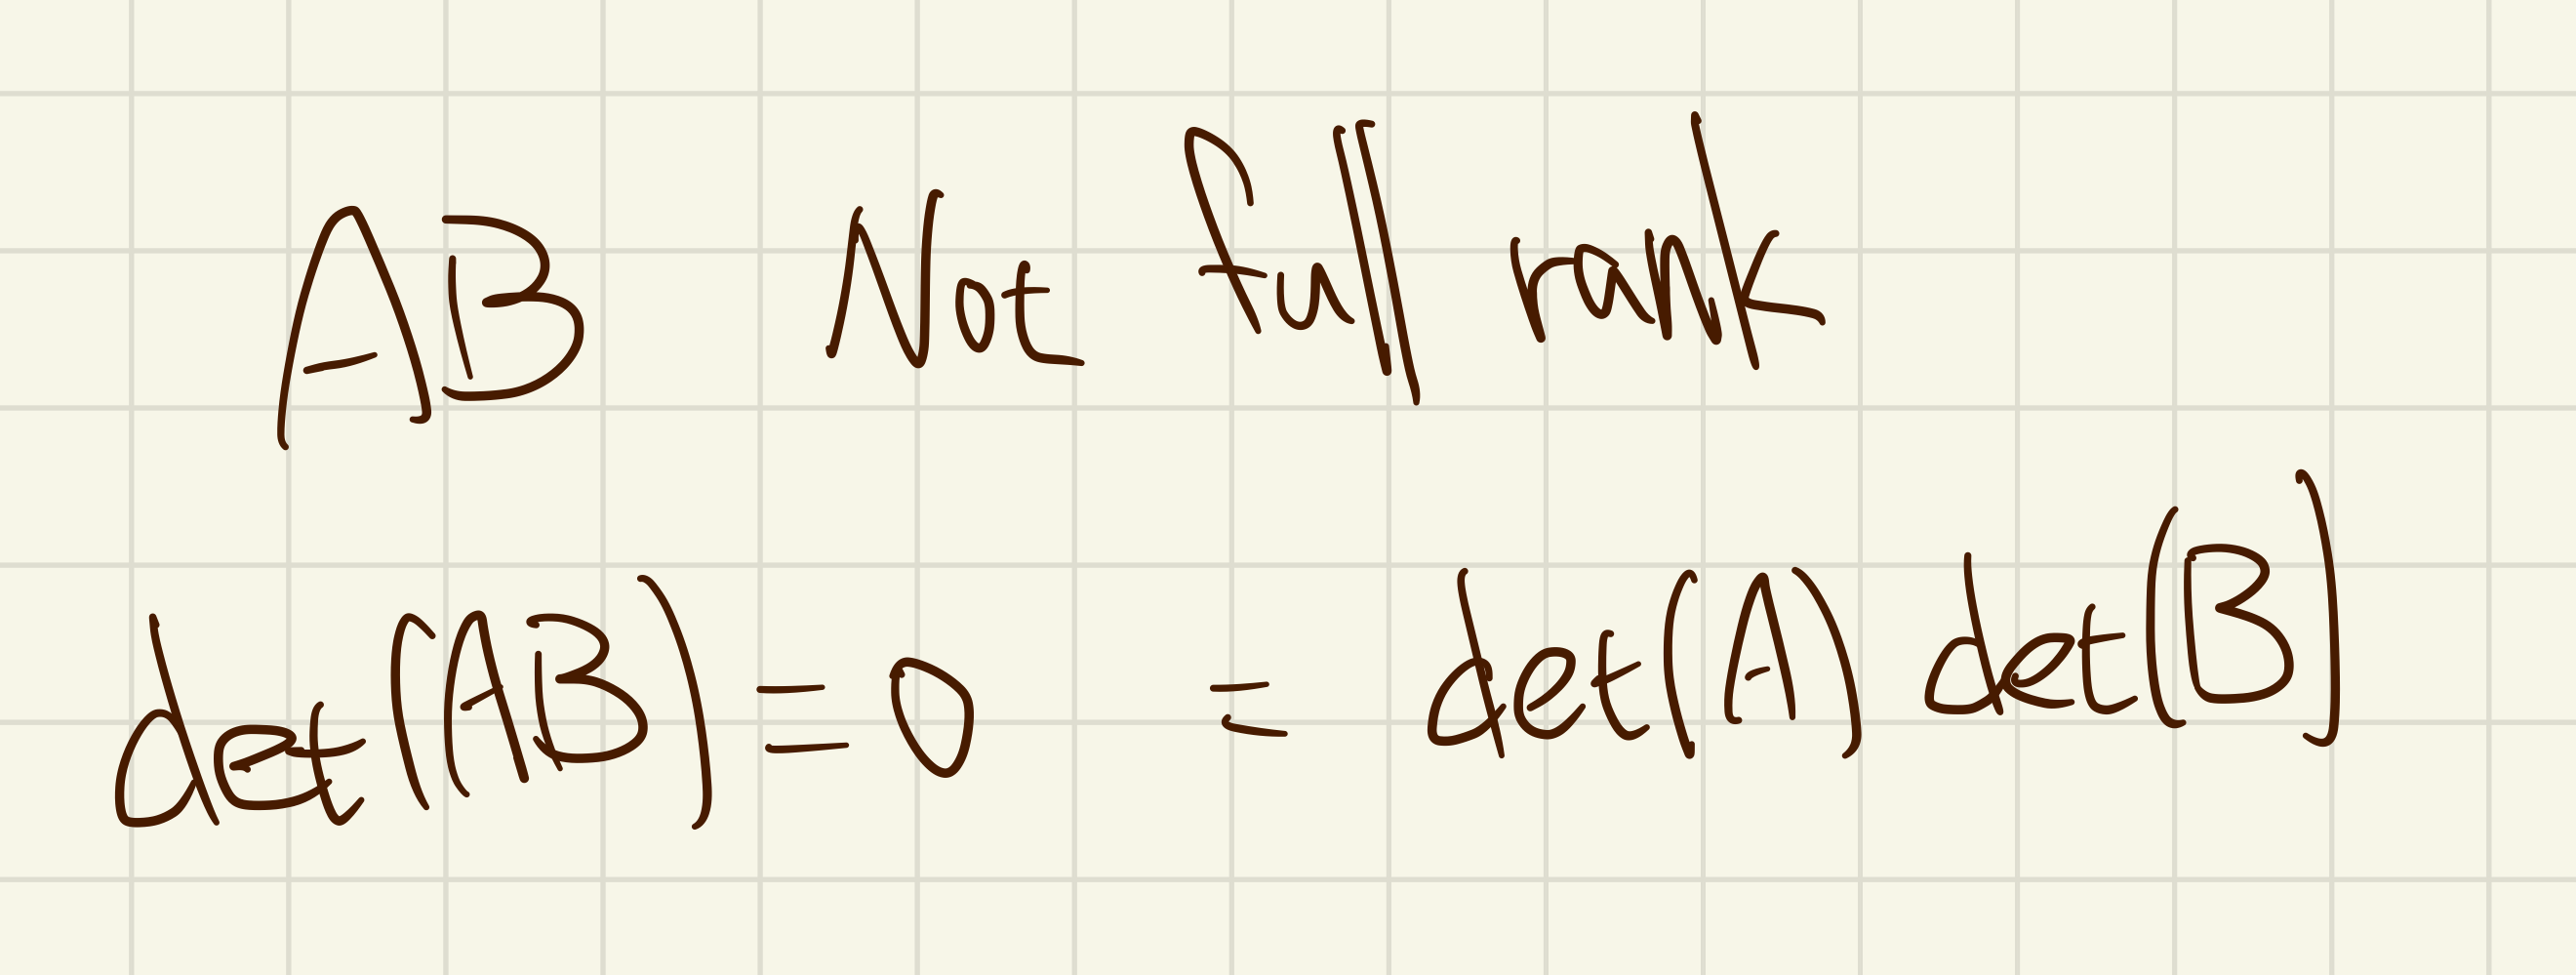 AB Not full rank
det(AB) = 0 = det(A) det(B)